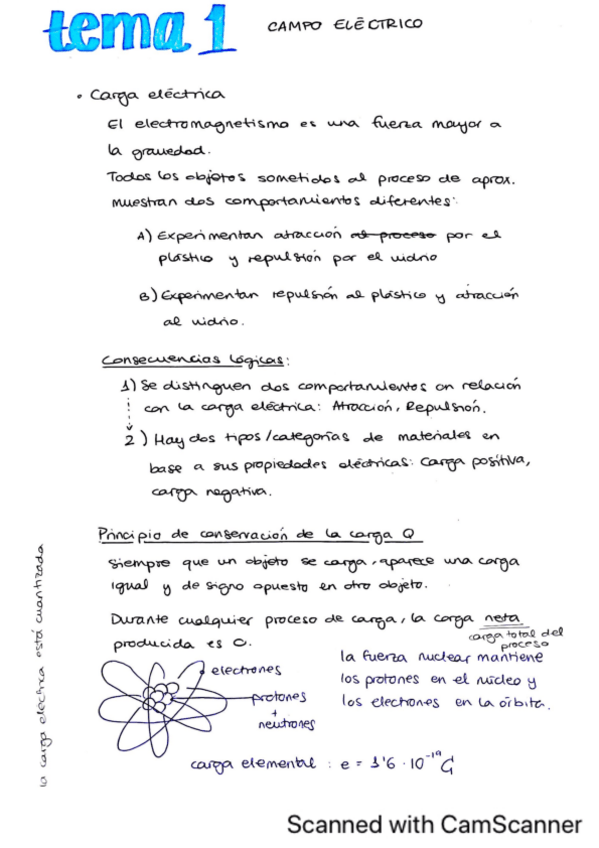 tema 1
CAMPO ELÉCTRICO
• Carga eléctrica
El electromagnetismo es una fuerza mayor a
la gravedad.
Todos los objetos sometidos al proceso de aprox.
muestran dos comportamientos diferentes:
A) Experimentan atracción al proceso por el
plástico y repulsión por el vidrio
B) Experimentan repulsión al plástico y atracción
al vidrio.
Consecuencias lógicas:
1) Se distinguen dos comportamientos en relación
con la carga eléctrica: Atracción, Repulsión.
2) Hay dos tipos/categorías de materiales en
base a sus propiedades eléctricas: Carga positiva,
carga negativa.
Principio de conservación de la carga Q
Siempre que un objeto se carga, aparece una carga
igual y de signo opuesto en otro objeto.
Durante cualquier proceso de carga, la carga neta
producida es 0.
carga total del
proceso
la fuerza nuclear mantiene
los protones en el núcleo y
los electrones en la órbita.
electrones
protones
+
neutrones
carga elemental: e = 1'6 · 10⁻¹⁹ C
la carga eléctrica está cuantizada
Scanned with CamScanner